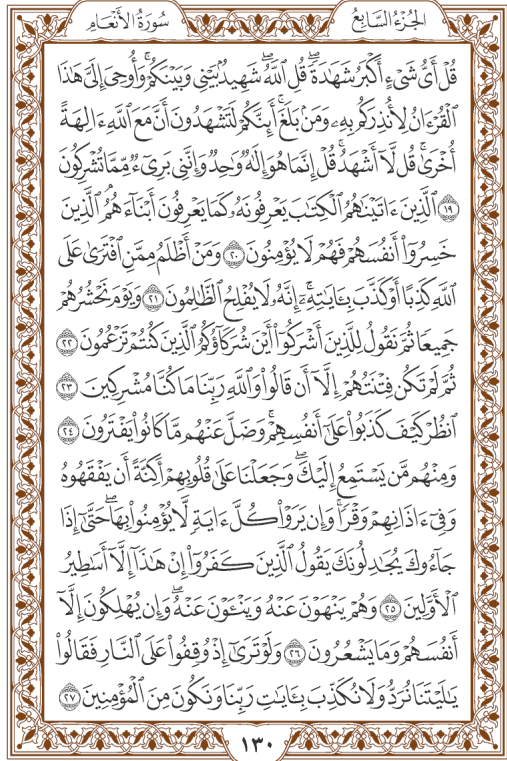 سُورَةُ الأَنْعَامِ
الجُزْءُ السَّابِعُ
قُلْ أَىُّ شَىْءٍ أَكْبَرُ شَهَٰدَةً ۖ قُلِ ٱللَّهُ ۖ شَهِيدٌۢ بَيْنِى وَبَيْنَكُمْ ۚ وَأُوحِىَ إِلَىَّ هَٰذَا
ٱلْقُرْءَانُ لِأُنذِرَكُم بِهِۦ وَمَنۢ بَلَغَ ۚ أَئِنَّكُمْ لَتَشْهَدُونَ أَنَّ مَعَ ٱللَّهِ ءَالِهَةً
أُخْرَىٰ ۚ قُل لَّآ أَشْهَدُ ۚ قُلْ إِنَّمَا هُوَ إِلَٰهٌ وَٰحِدٌ وَإِنَّنِى بَرِىٓءٌ مِّمَّا تُشْرِكُونَ
١٩ ٱلَّذِينَ ءَاتَيْنَٰهُمُ ٱلْكِتَٰبَ يَعْرِفُونَهُۥ كَمَا يَعْرِفُونَ أَبْنَآءَهُمُ ۘ ٱلَّذِينَ
خَسِرُوٓا۟ أَنفُسَهُمْ فَهُمْ لَا يُؤْمِنُونَ ٢٠ وَمَنْ أَظْلَمُ مِمَّنِ ٱفْتَرَىٰ عَلَى
ٱللَّهِ كَذِبًا أَوْ كَذَّبَ بِـَٔايَٰتِهِۦٓ ۗ إِنَّهُۥ لَا يُفْلِحُ ٱلظَّٰلِمُونَ ٢١ وَيَوْمَ نَحْشُرُهُمْ
جَمِيعًا ثُمَّ نَقُولُ لِلَّذِينَ أَشْرَكُوٓا۟ أَيْنَ شُرَكَآؤُكُمُ ٱلَّذِينَ كُنتُمْ تَزْعُمُونَ ٢٢
ثُمَّ لَمْ تَكُن فِتْنَتُهُمْ إِلَّآ أَن قَالُوا۟ وَٱللَّهِ رَبِّنَا مَا كُنَّا مُشْرِكِينَ ٢٣
ٱنظُرْ كَيْفَ كَذَبُوا۟ عَلَىٰٓ أَنفُسِهِمْ ۚ وَضَلَّ عَنْهُم مَّا كَانُوا۟ يَفْتَرُونَ ٢٤
وَمِنْهُم مَّن يَسْتَمِعُ إِلَيْكَ ۖ وَجَعَلْنَا عَلَىٰ قُلُوبِهِمْ أَكِنَّةً أَن يَفْقَهُوهُ
وَفِىٓ ءَاذَانِهِمْ وَقْرًا ۚ وَإِن يَرَوْا۟ كُلَّ ءَايَةٍ لَّا يُؤْمِنُوا۟ بِهَا ۖ حَتَّىٰٓ إِذَا
جَآءُوكَ يُجَٰدِلُونَكَ يَقُولُ ٱلَّذِينَ كَفَرُوٓا۟ إِنْ هَٰذَآ إِلَّآ أَسَٰطِيرُ
ٱلْأَوَّلِينَ ٢٥ وَهُمْ يَنْهَوْنَ عَنْهُ وَيَنْـَٔوْنَ عَنْهُ ۖ وَإِن يُهْلِكُونَ إِلَّآ
أَنفُسَهُمْ وَمَا يَشْعُرُونَ ٢٦ وَلَوْ تَرَىٰٓ إِذْ وُقِفُوا۟ عَلَى ٱلنَّارِ فَقَالُوا۟
يَٰلَيْتَنَا نُرَدُّ وَلَا نُكَذِّبَ بِـَٔايَٰتِ رَبِّنَا وَنَكُونَ مِنَ ٱلْمُؤْمِنِينَ ٢٧
١٣٠